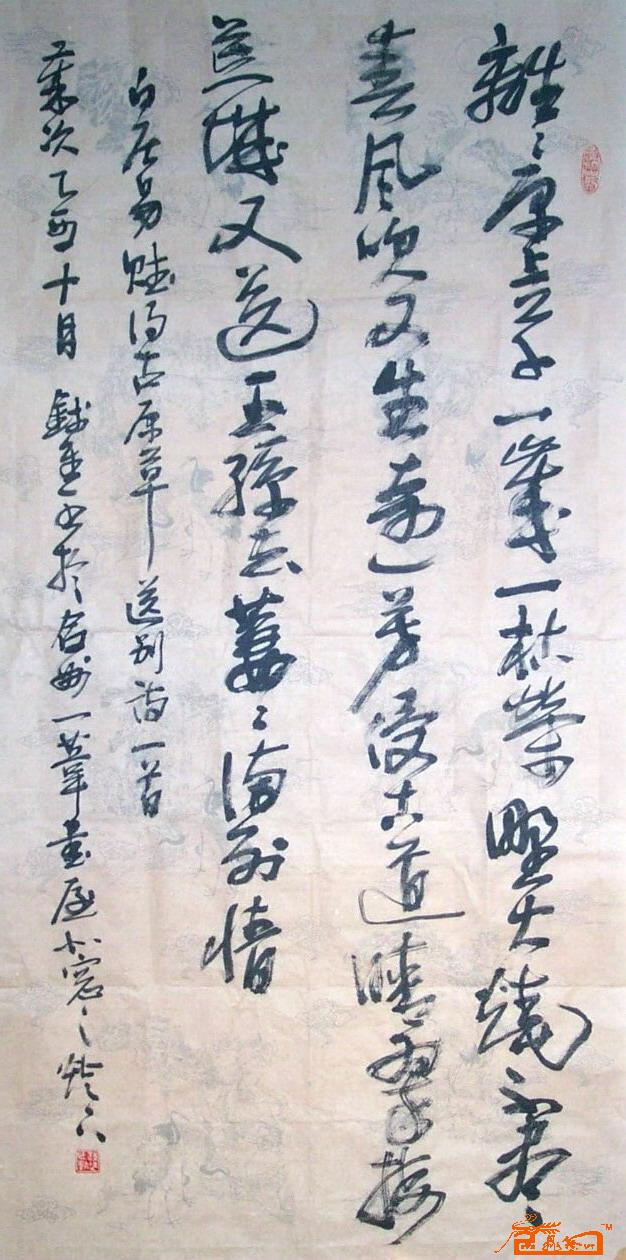 離〻原上草一歲一枯榮野火燒不盡
春風吹又生遠芳侵古道晴翠接
荒城又送王孫去萋〻滿別情
白居易賦得古原草送别詩一首
歲次乙酉十月 書於台州一葦書屋小窗之燈下